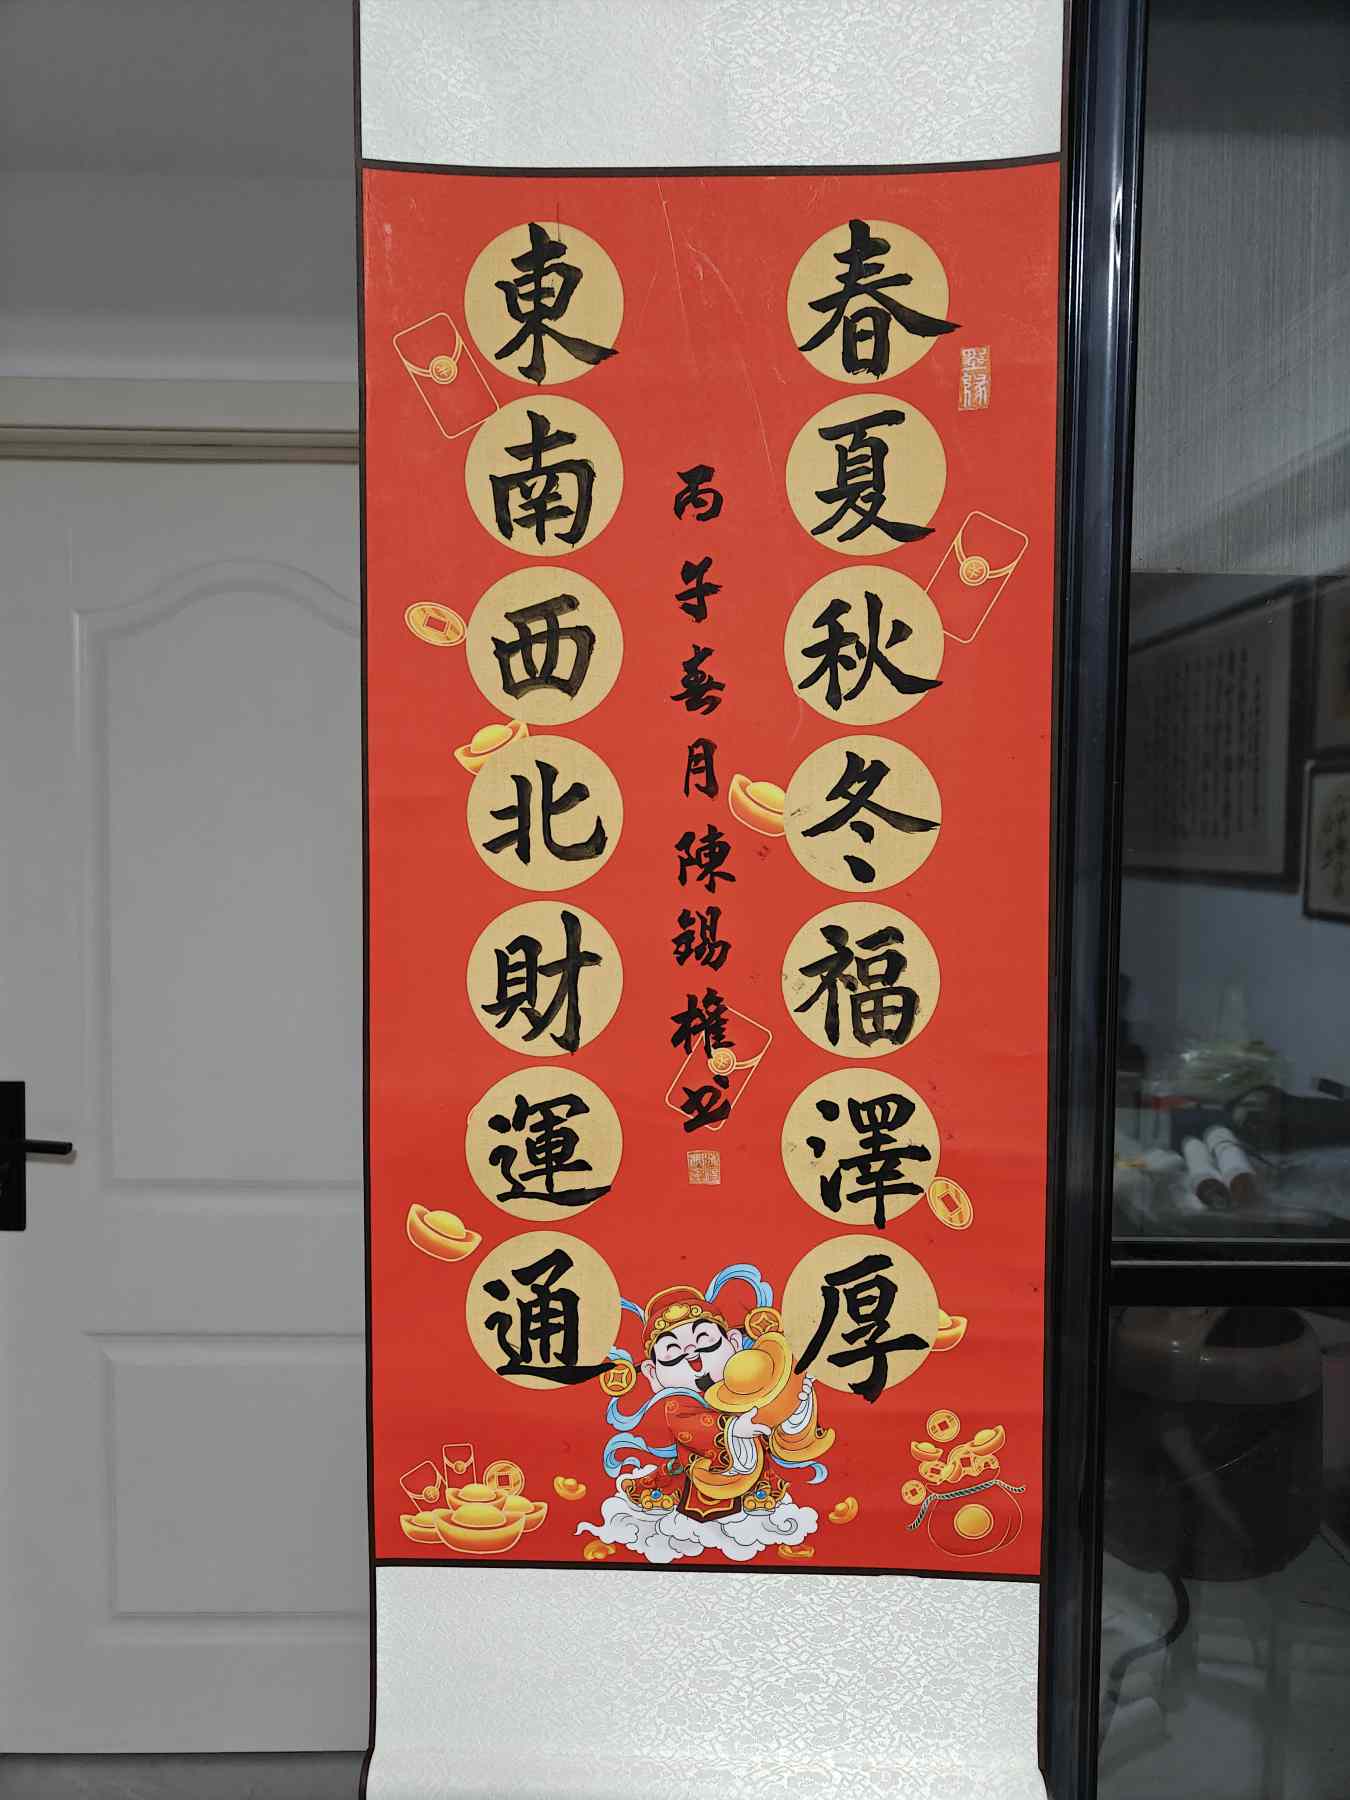 春夏秋冬福澤厚
墨缘
丙午春月陳錫權书
東南西北財運通